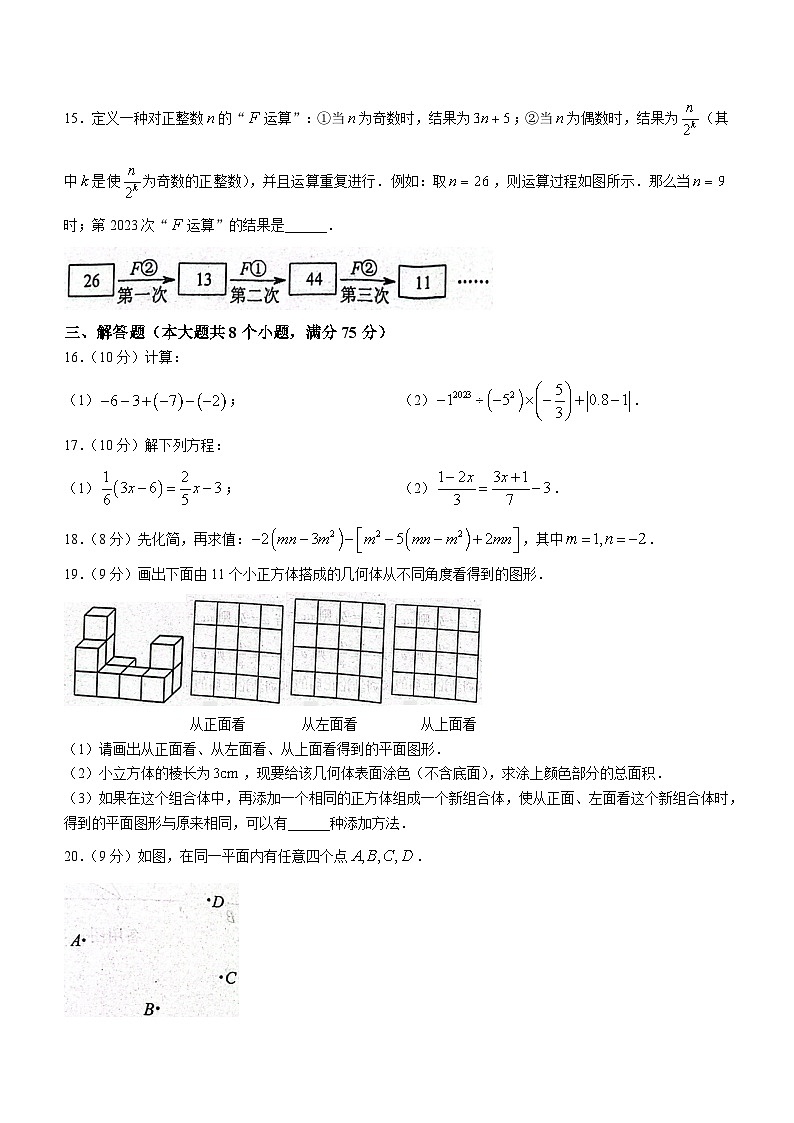 15．定义一种对正整数n的“F运算”：①当n为奇数时，结果为3n+5；②当n为偶数时，结果为n/2^k（其
中k是使n/2^k为奇数的正整数），并且运算重复进行．例如：取n=26，则运算过程如图所示．那么当n=9
时；第2023次“F运算”的结果是______．
26 F② 第一次 13 F① 第二次 44 F② 第三次 11 ……
三、解答题（本大题共8个小题，满分75分）
16.（10分）计算：
（1）−6−3+(−7)−(−2)； （2）−1^2023÷(−5^2)×(−5/3)+|0.8−1|．
17.（10分）解下列方程：
（1）1/6(3x−6)=2/5x−3； （2）(1−2x)/3=(3x+1)/7−3．
18.（8分）先化简，再求值：−2(mn−3m^2)−[m^2−5(mn−m^2)+2mn]，其中m=1,n=−2．
19.（9分）画出下面由11个小正方体搭成的几何体从不同角度看得到的图形．
从正面看 从左面看 从上面看
（1）请画出从正面看、从左面看、从上面看得到的平面图形．
（2）小立方体的棱长为3cm，现要给该几何体表面涂色（不含底面），求涂上颜色部分的总面积．
（3）如果在这个组合体中，再添加一个相同的正方体组成一个新组合体，使从正面、左面看这个新组合体时，
得到的平面图形与原来相同，可以有______种添加方法．
20.（9分）如图，在同一平面内有任意四个点A,B,C,D．
D
A
C
B